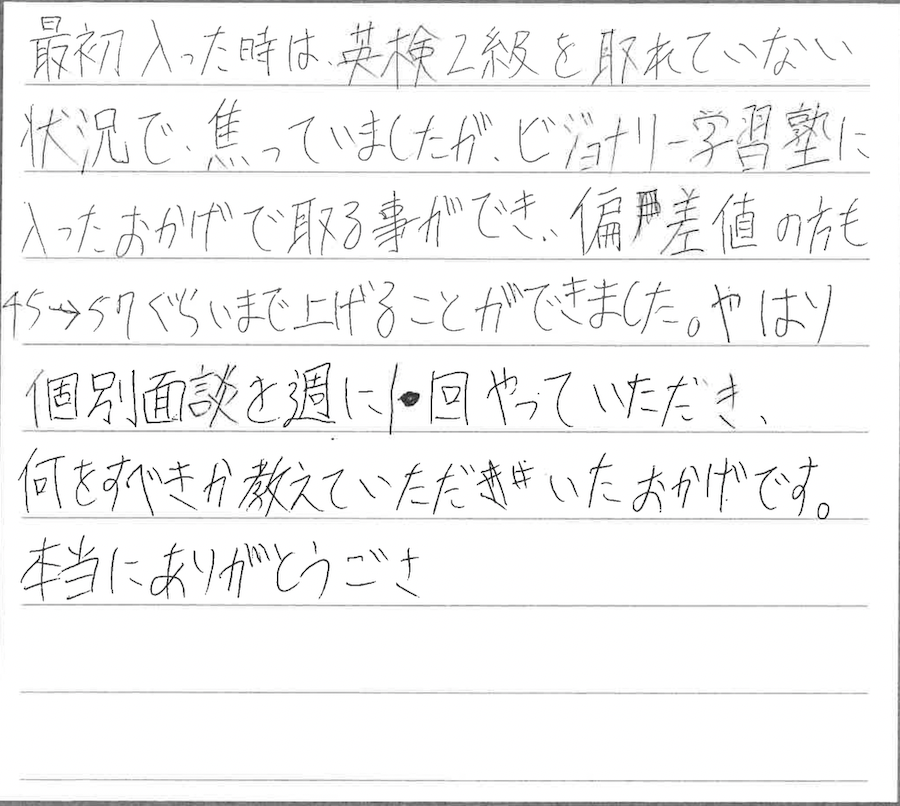 最初入った時は、英検2級を取れていない
状況で、焦っていましたが、ビジョナリー学習塾に
入ったおかげで取る事ができ、偏差値の方も
45→57ぐらいまで上げることができました。やはり
個別面談を週に1回やっていただき、
何をすべきか教えていただいたおかげです。
本当にありがとうごさ